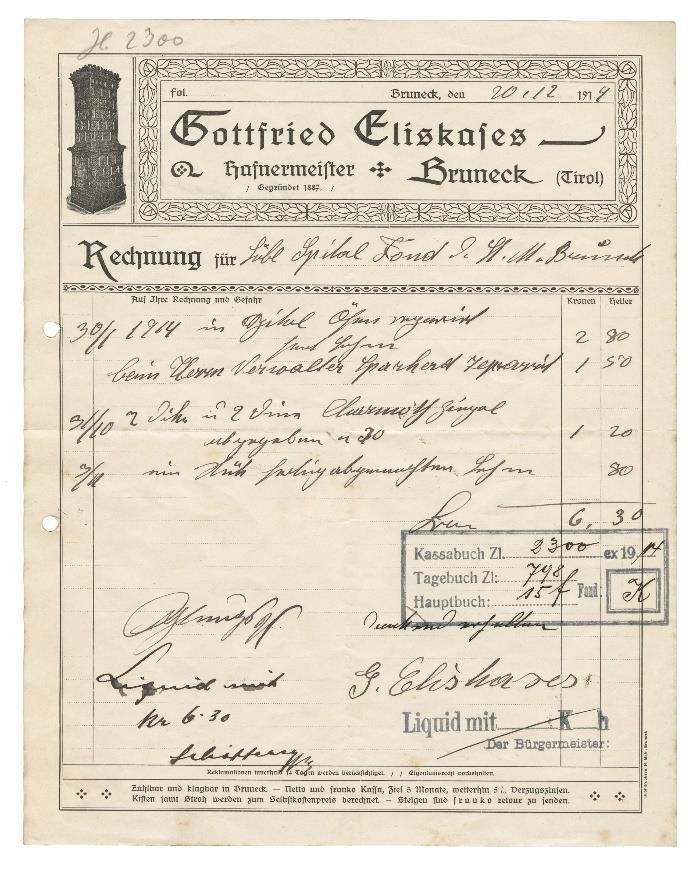 H 2300
fol. Bruneck, den 20.12 1914
Gottfried Eliskases
Hafnermeister Bruneck (Tirol)
/ Gegründet 1887. /
Rechnung für Löbl Spital Fond d. St. M. Bruneck
Auf Ihre Rechnung und Gefahr Kronen Heller
30/1 1914 in Spital Öfen reparirt
samt Lehm 2 80
beim Herrn Verwalter Sparherd reparirt 1 50
31/10 2 dike u 2 dine Charmoth Zingel
abgegeben a 30 1 20
7/11 ein Küb fertig abgemachten Lehm 80
6, 30
Kassabuch Zl. 2300 ex 1914
Tagebuch Zl: 798
Hauptbuch: 15 f Fond: K
dankend erhalten
Liquid mit
Kr 6.30
G. Eliskases
Liquid mit K h
Der Bürgermeister:
Reklamationen innerhalb 14 Tagen werden berücksichtigt. / / Eigentumsrecht vorbehalten.
Zahlbar und klagbar in Bruneck. — Netto und franko Kassa, Ziel 3 Monate, weiterhin 5% Verzugszinsen.
Kisten samt Stroh werden zum Selbstkostenpreis berechnet. — Steigen sind franko retour zu senden.